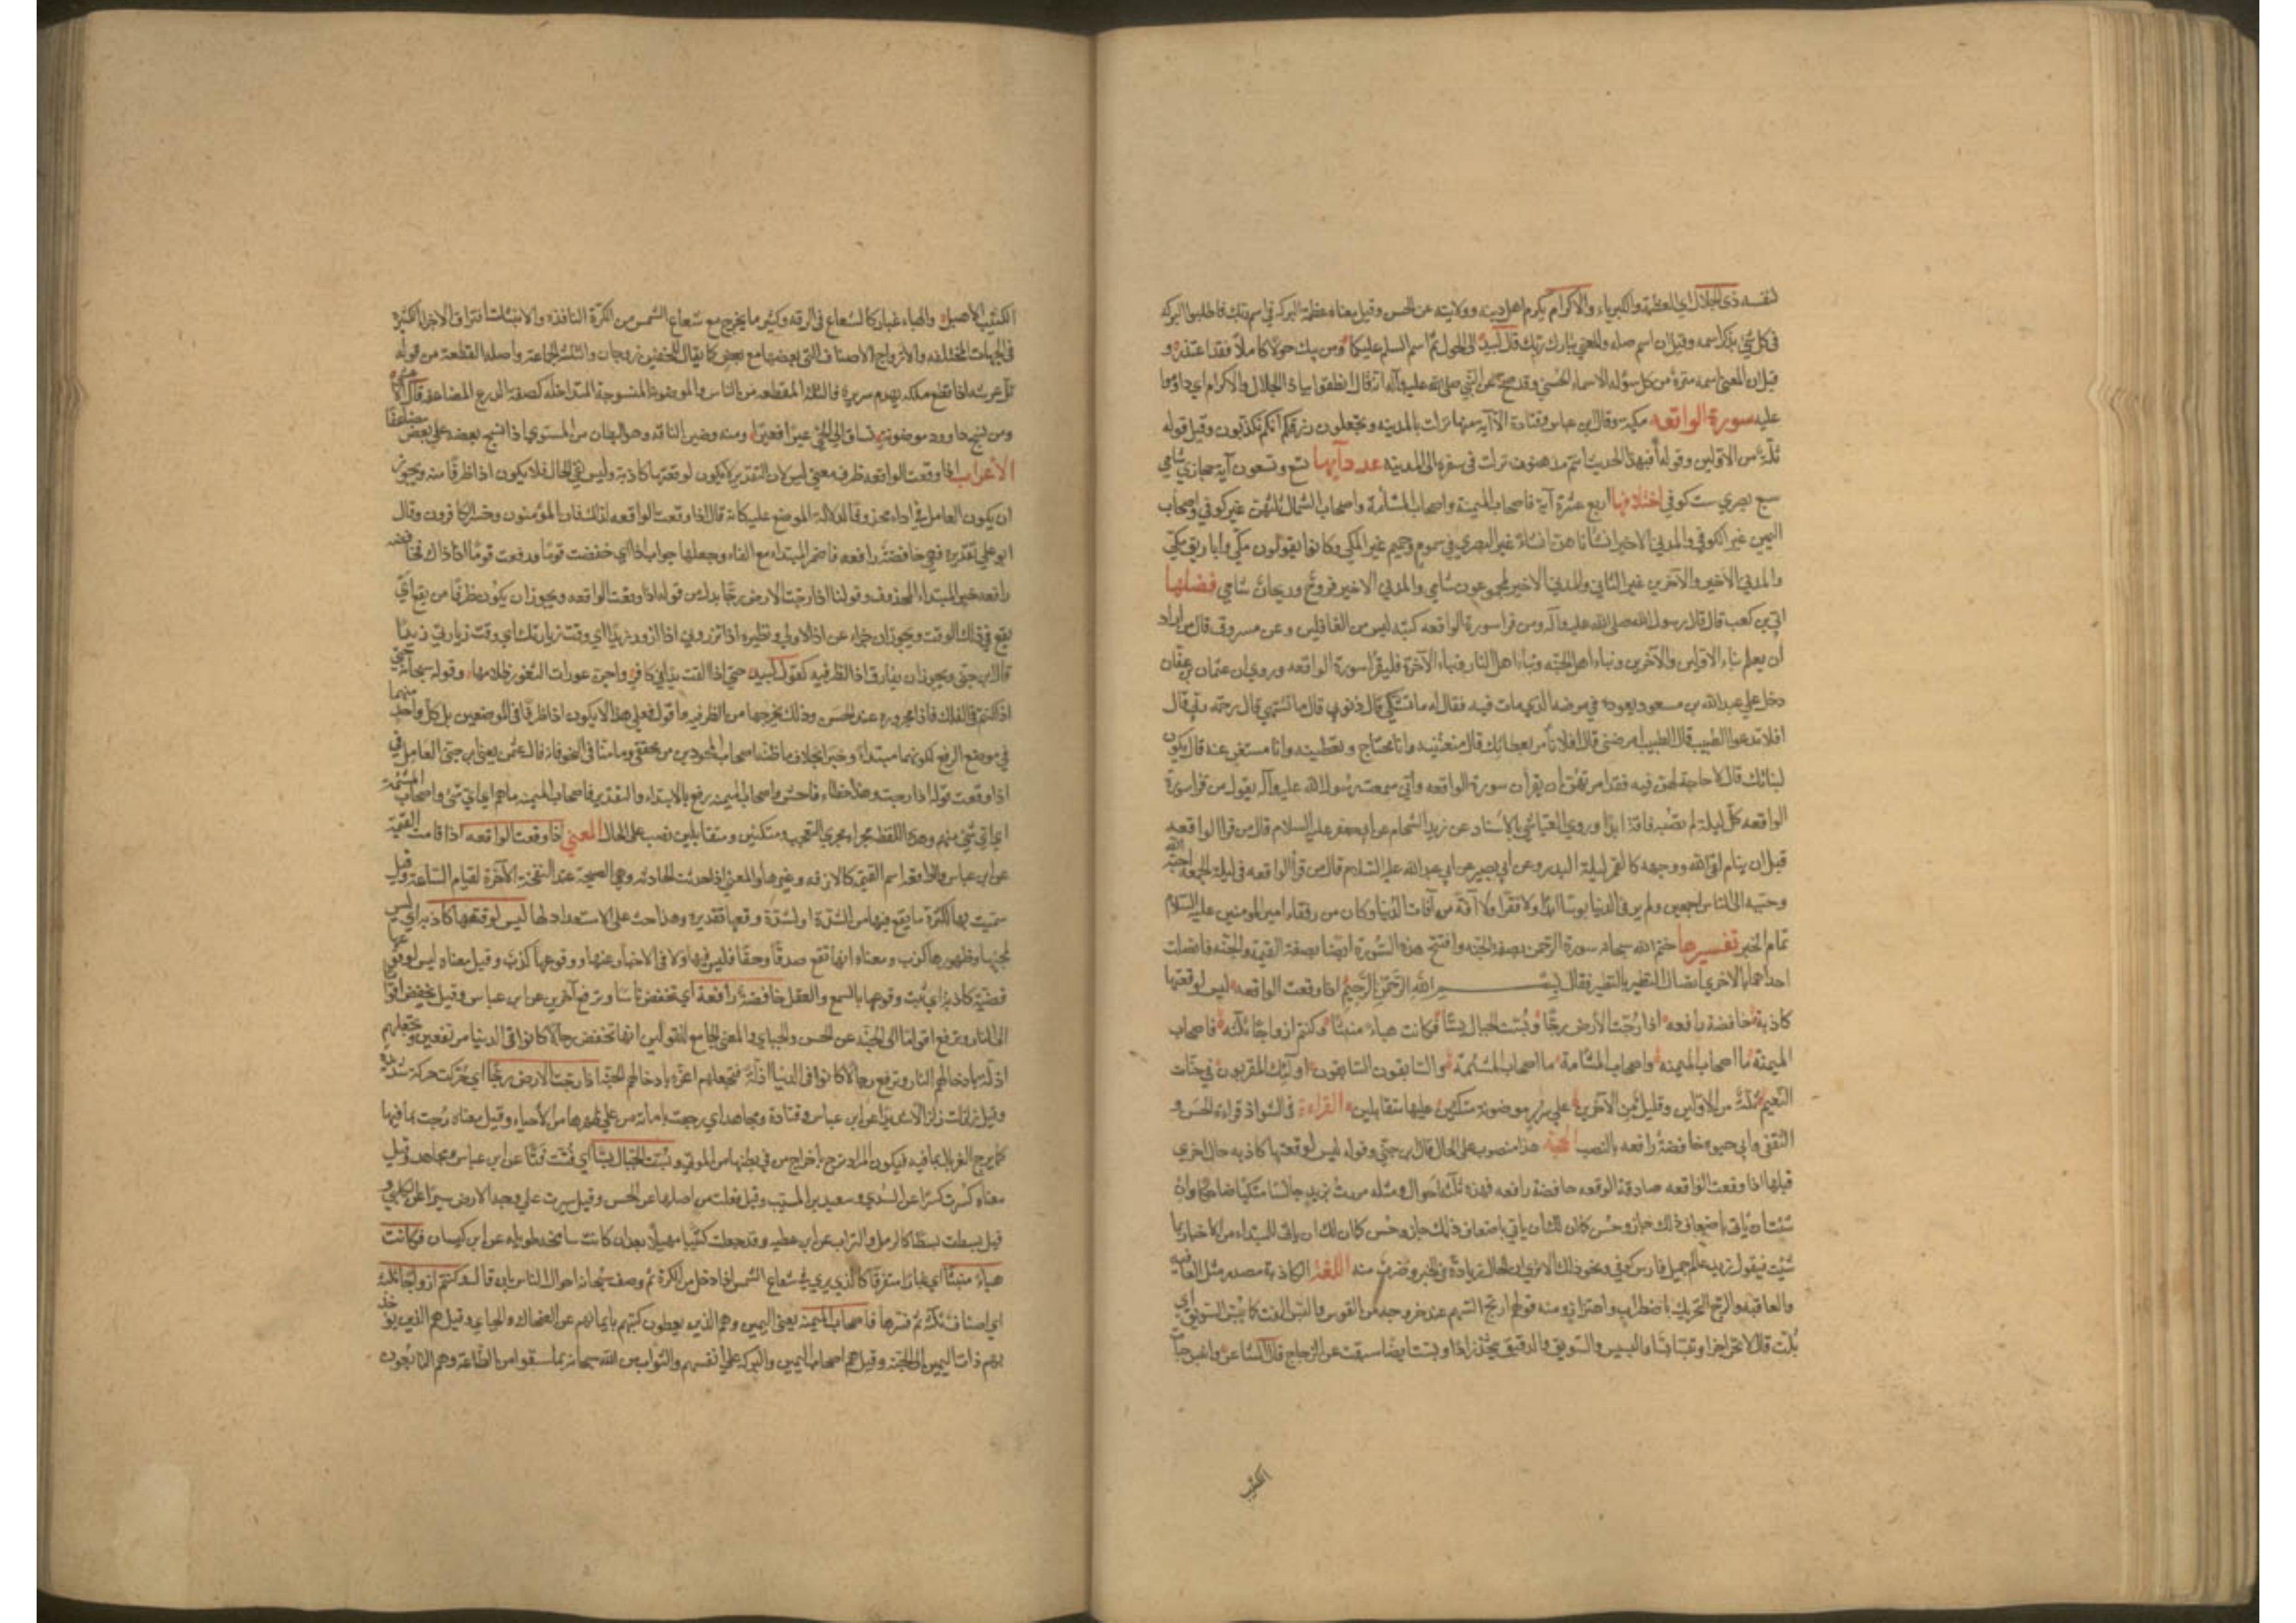 لنفسه ذي الجلال اي العظمة والكبرياء والاكرام يكرم اهل دينه وولايته عن الحسن وقيل معناه عظمة البركة في اسم ربك فاطلبوا البركة
في كل شيء بذكر اسمه وقيل ان اسم صله والمعني تبارك ربك قال لبيد الي الحول ثم اسم السلم عليكما ومن يبك حولا كاملا فقد اعتذر و
قيل ان المعني اسمه منزه من كل سؤ له الاسماء الحسني وقد صح عن النبي صلي الله عليه وآله انه قال انطقوا بياذا الجلال والاكرام اي داوموا
عليه سورة الواقعه مكيه وقال ابن عباس وقتادة الا آية منها نزلت بالمدينه وتجعلون رزقكم انكم تكذبون وقيل قوله
ثلة من الاولين وقوله أفبهذا الحديث انتم مدهنون نزلت في سفره الي المدينة عدد آيها تسع وتسعون آية حجازي شامي
سبع بصري ست كوفي اختلافها اربع عشرة آية فاصحاب الميمنة واصحاب المشأمة واصحاب الشمال ثلثهن غير كوفي واصحاب
اليمين غير الكوفي والمدني الاخير انشأناهن انشاء غير البصري في سموم وحميم غير المكي وكانوا يقولون مكي واباريق مكي
والمدني الاخير والآخرين غير الشامي والمدني الاخير لمجموعون شامي والمدني الاخير فروح وريحان شامي فضلها
ابي بن كعب قال قال رسول الله صلي الله عليه وآله ومن قرا سورة الواقعه كتب ليس من الغافلين وعن مسروق قال من اراد
ان يعلم نباء الاولين والآخرين ونباء اهل الجنه ونباء اهل النار ونباء الآخرة فليقرا سورة الواقعه وروي ان عثمان بن عفان
دخل علي عبدالله بن مسعود يعوده في مرضه الذي مات فيه فقال له ما تشتكي قال ذنوبي قال ما تشتهي قال رحمة ربي قال
افلا ندعوا الطبيب قال الطبيب امرضني قال افلا نأمر بعطائك قال منعتنيه وانا محتاج وتعطينيه وانا مستغن عنه قال يكون
لبناتك قال لا حاجة لهن فيه فقد امرتهن ان يقرأن سورة الواقعه فاني سمعت رسول الله عليه وآله يقول من قرا سورة
الواقعه كل ليلة لم تصبه فاقة ابدا وروي العياشي بالاسناد عن زيد الشحام عن ابي جعفر عليه السلام قال من قرا الواقعه
قبل ان ينام لقي الله ووجهه كالقمر ليلة البدر وعن ابي بصير عن ابي عبد الله عليه السلام قال من قرأ الواقعه في ليلة الجمعه احبه الله
وحببه الي الناس اجمعين ولم ير في الدنيا بوسا ابدا ولا فقرا ولا آفة من آفات الدنيا وكان من رفقاء امير المومنين عليه السلام
تمام الخبر تفسيرها ختم الله سبحانه سورة الرحمن بصفة الجنه وافتتح هذه السورة ايضا بصفة القيمة والجنه فاتصلت
احداهما بالاخري اتصال النظير بالنظير فقال بسم الله الرحمن الرحيم اذا وقعت الواقعه ليس لوقعتها
كاذبة خافضة رافعه اذا رجت الارض رجا وبست الجبال بسا فكانت هباء منبثا وكنتم ازواجا ثلثه فاصحاب
الميمنة ما اصحاب الميمنه واصحاب المشامة ما اصحاب المشئمة والسابقون السابقون اولئك المقربون في جنات
النعيم ثلة من الاولين وقليل من الآخرين علي سرر موضونة متكئين عليها متقابلين القراءة في الشواذ قراءة الحسن و
الثقفي وابي حيوه خافضة رافعه بالنصب الحجه هذا منصوب علي الحال قال ابن جني وقوله ليس لوقعتها كاذبه حال اخري
قبلها اذا وقعت الواقعه صادقة الوقعه خافضة رافعه فهذه ثلثة احوال ومثله مررت بزيد جالسا متكئا ضاحكا وان
شئت ان ياتي باضعاف ذلك جاز وحسن كما ان لك ان ياتي باضعاف ذلك جاز وحسن كما ان لك ان ياتي للمبتداء من الاخبار بما
شئت فيقول زيد عالم جميل فارس كوفي ونحو ذلك الا تري ان الحال زيادة في الخبر وضرب منه اللغة الكاذبة مصدر مثل العافيه
والعاقبه والرج التحريك باضطراب واهتزاز ومنه قولهم ارتج السهم عند خروجه من القوس والبس الفت كما يبس السويق اي
يلت قال لا تخبزا خبزا وبسا بسا والبسيس والسويق والدقيق يتخذ زادا وبست ايضا سيقت عن الزجاج قال الشاعر وانبس حيات
الكثيب
الكثيب الأصيل والهباء غبار كالشعاع في الرقه وكثير ما يخرج مع شعاع الشمس من الكوة النافذه والانبثاث افتراق الاجزاء الكثيرة
في الجهات المختلفه والازواج الاصناف التي بعضها مع بعض كما يقال للخفين زوجان والثلة الجماعة واصله القطعة من قولهم
ثل عرشه اذا قطع ملكه بهدم سريره فالثلة المقطعه من الناس والموضونة المنسوجة المتداخله كصفة الدرع المضاعفة قال الاعشي
ومن نسج داوود موضونة تساق الي الحي عيرا فعيرا ومنه وضين الناقه وهو البطان من المستوي اذا نسج بعضه علي بعض مضاعفا
الأعراب اذا وقعت الواقعه ظرف معني ليس لان التقدير لا يكون لوقعتها كاذبة وليس نفي الحال فلا يكون اذا ظرفا منه ويجوز
ان يكون العامل في اذا محذوفا لدلالة الموضع عليه كانه قال اذا وقعت الواقعه اذلك فاز المؤمنون وخسر الكافرون وقال
ابو علي تقديره فهي خافضة رافعه فاضمر المبتداء مع الفاء وجعلها جواب اذا اي خفضت قوما ورفعت قوما اذا ذاك فخافضه
رافعه خبر المبتداء المحذوف وقولنا اذا رجت الارض رجا بدل من قوله اذا وقعت الواقعه ويجوز ان يكون ظرفا من يقع اي
يقع في ذلك الوقت ويجوز ان خبراء عن اذا الاولي ونظيره اذا تزروني اذا ازور زيدا اي وقت زيارتك اي وقت زيارتي زيدا
قال ابن جني ويجوز ان يفارق اذا الظرفيه كقول لبيد حتي اذا القت يدا في كافر واجن عورات الثغور ظلامها وقوله سبحانه حتي
اذا كنتم في الفلك فاذا مجروره عند الحسن وذلك يخرجها من الظرفيه واقول فعلي هذا لا يكون اذا ظرفا في الموضعين بل كل واحد منهما
في موضع الرفع لكونهما مبتدأ وخبرا بخلاف ما ظنه اصحاب المجودين من محققي زماننا في النحو فانه قال عثمن يعني ابن جني العامل في
اذا وقعت قوله اذا رجت وهذا خطاء فاحش واصحاب الميمنه رفع بالابتداء والتقدير فاصحاب الميمنه ماهم اي اي شيء واصحاب المشئمة
اي اي شيء هم وهذه اللفظة مجراه مجري التعجب ومتكئين ومتقابلين نصب علي الحال المعني اذا وقعت الواقعه اذا قامت القيمة
عن ابن عباس والواقعه اسم القيمه كالازفه وغيرها والمعني اذا حدثت الحادثه وهي الصيحة عند النفخة الآخرة لقيام الساعة وقيل
سميت بها لكثرة ما يقع فيها من الشدة او لشدة وقعها تقديره وهذا حث علي الاستعداد لها ليس لوقعتها كاذبة اي ليس
لمجيئها وظهورها كذب ومعناه انها تقع صدقا وحقا فليس فيها ولا في الاخبار عنها ووقوعها كذب وقيل معناه ليس لوقوعها
قضية كاذبة اي ثبت وقوعها بالسمع والعقل خافضة رافعة اي تخفض ناسا وترفع آخرين عن ابن عباس وقيل يخفض اقواما
الي النار وترفع اقواما الي الجنة عن الحسن والجبائي والمعني الجامع للقولين انها تخفض رجالا كانوا في الدنيا مرتفعين وتجعلهم
اذلة بادخالهم النار وترفع رجالا كانوا في الدنيا اذلة فتجعلهم اعزه بادخالهم الجنة اذا رجت الارض رجا اي حركت حركة شديدة
وقيل زلزلت زلزالا شديدا عن ابن عباس وقتادة ومجاهد اي رجت باماتة من علي ظهرها من الأحياء وقيل معناه رجت بما فيها
كما يرج الغربال بما فيه فيكون المراد ترج باخراج من في بطنها من الموتي وبست الجبال بسا اي فتت فتا عن ابن عباس ومجاهد وقيل
معناه كسرت كسرا عن السدي وسعيد بن المسيب وقيل قلعت من اصلها عن الحسن وقيل سيرت علي وجه الارض سيرا عن الكلبي و
قيل بسطت بسطا كالرمل والتراب عن ابن عطيه وقد جعلت كثيبا مهيلا بعد ان كانت شامخه طويله عن ابن كيسان فكانت
هباء منبثا اي غبارا متفرقا كالذي يري في شعاع الشمس اذا دخل من الكوة ثم وصف سبحانه احوال الناس بان قال وكنتم ازواجا ثلثة
اي اصنافا ثلثه ثم فسرها فاصحاب الميمنة يعني اليمين وهم الذين يعطون كتبهم بايمانهم عن الضحاك والجبائي وقيل هم الذين يوخذ
بهم ذات اليمين الي الجنة وقيل هم اصحاب اليمين والبركة علي انفسهم والثواب من الله سبحانه بما سبقوا من الطاعة وهم التابعون